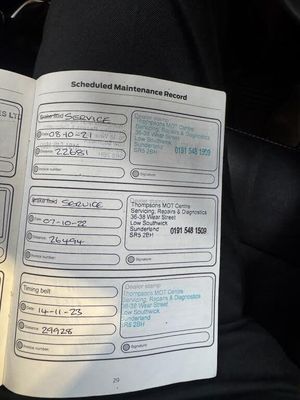 Scheduled Maintenance Record
Brake fluid SERVICE
Date 08-10-21
Distance 22681
Invoice number
Dealer stamp
Thompsons MOT Centre
Servicing, Repairs & Diagnostics
36-38 Wear Street
Low Southwick
Sunderland
SR5 2BH 0191 548 1509
Signature
Brake fluid SERVICE
Date 07-10-22
Distance 26494
Invoice number
Thompsons MOT Centre
Servicing, Repairs & Diagnostics
36-38 Wear Street
Low Southwick
Sunderland
SR5 2BH 0191 548 1509
Signature
Timing belt
Date 14-11-23
Distance 29928
Invoice number
Dealer stamp
Thompsons MOT Centre
Servicing, Repairs & Diagnostics
36-38 Wear Street
Low Southwick
Sunderland
SR5 2BH
Signature
29